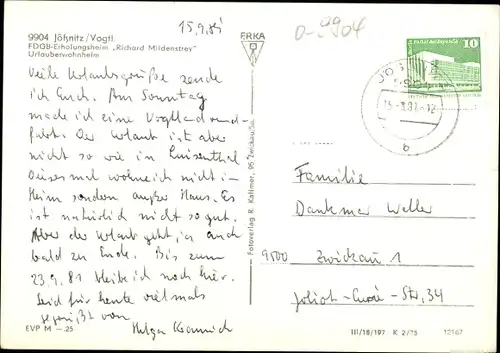 15.9.81
D-9904
9904 Jößnitz/Vogtl.
FDGB-Erholungsheim „Richard Mildenstrey"
Urlauberwohnheim
ERKA
10
Viele Urlaubsgrüße sende
ich Euch. Am Sonntag
mache ich eine Vogtlandrund-
fahrt. Der Urlaub ist aber
nicht so wie in Luisenthal
Diesesmal wohne ich nicht i.
Heim sondern außer Haus. Es
ist natürlich nicht so gut.
Aber der Urlaub geht ja auch
bald zu Ende. Bis zum
23.9.81 bleibe ich noch hier.
Seid für heute vielmals
gegrüßt von
Helga
EVP M —.25
Fotoverlag R. Kallmer, 95 Zwickau/Sa.
b
Familie
Dankmar Weller
9500 Zwickau 1
Joliot-Curie-Str. 34
III/18/197 K 2/75 12167